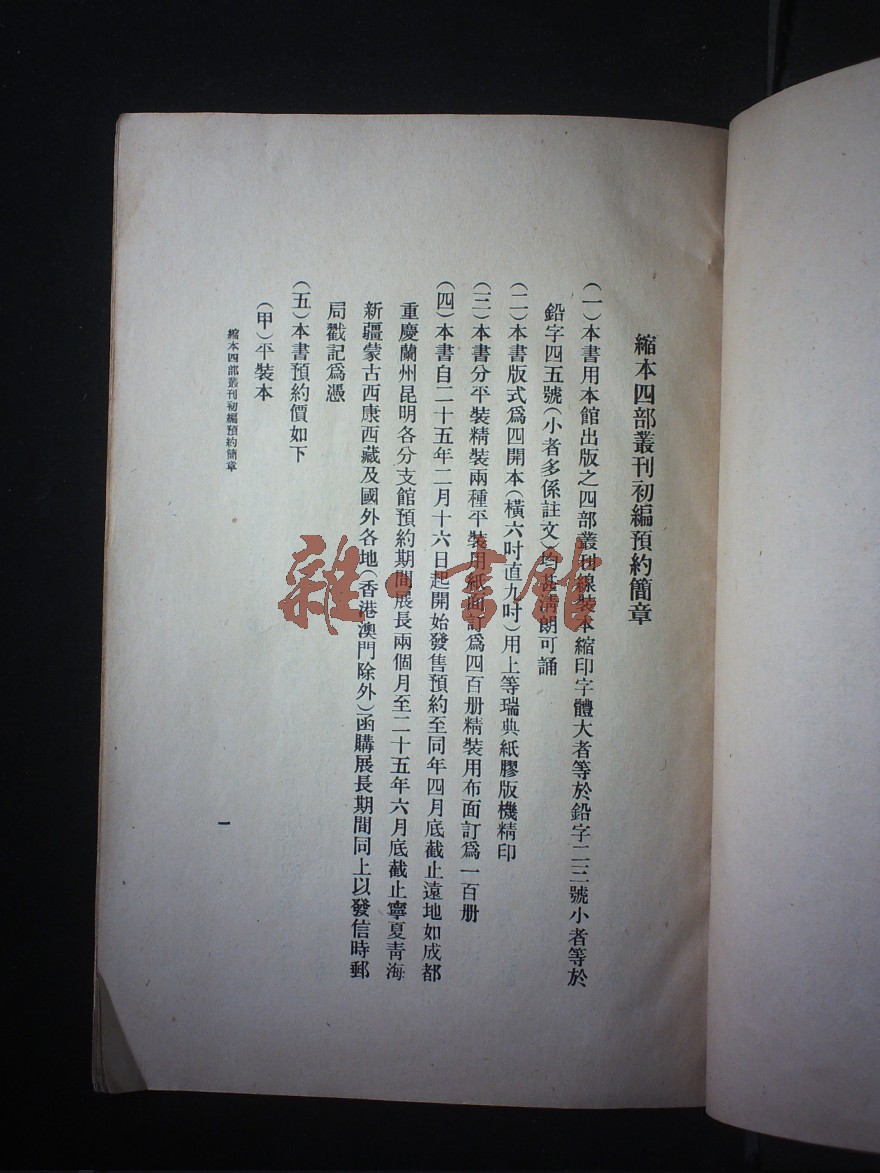 縮本四部叢刊初編預約簡章
(一)本書用本館出版之四部叢刊線裝本縮印字體大者等於鉛字二三號小者等於
鉛字四五號(小者多係註文)均甚淸朗可誦
(二)本書版式爲四開本(橫六吋直九吋)用上等瑞典紙膠版機精印
(三)本書分平裝精裝兩種平裝用紙面訂爲四百册精裝用布面訂爲一百册
(四)本書自二十五年二月十六日起開始發售預約至同年四月底截止遠地如成都
重慶蘭州昆明各分支館預約期間展長兩個月至二十五年六月底截止寧夏靑海
新疆蒙古西康西藏及國外各地(香港澳門除外)函購展長期間同上以發信時郵
局戳記爲憑
(五)本書預約價如下
(甲)平裝本
縮本四部叢刊初編預約簡章
一
雜·書館